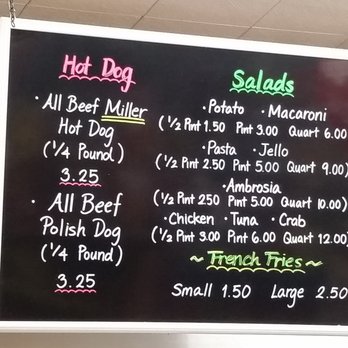 Hot Dog
• All Beef Miller
Hot Dog
(1/4 Pound)
3.25
• All Beef
Polish Dog
(1/4 Pound)
3.25
Salads
• Potato • Macaroni
(1/2 Pint 1.50 Pint 3.00 Quart 6.00)
• Pasta • Jello
(1/2 Pint 2.50 Pint 5.00 Quart 9.00)
• Ambrosia
(1/2 Pint 2.50 Pint 5.00 Quart 10.00)
• Chicken • Tuna • Crab
(1/2 Pint 3.00 Pint 6.00 Quart 12.00)
~ French Fries ~
Small 1.50 Large 2.50